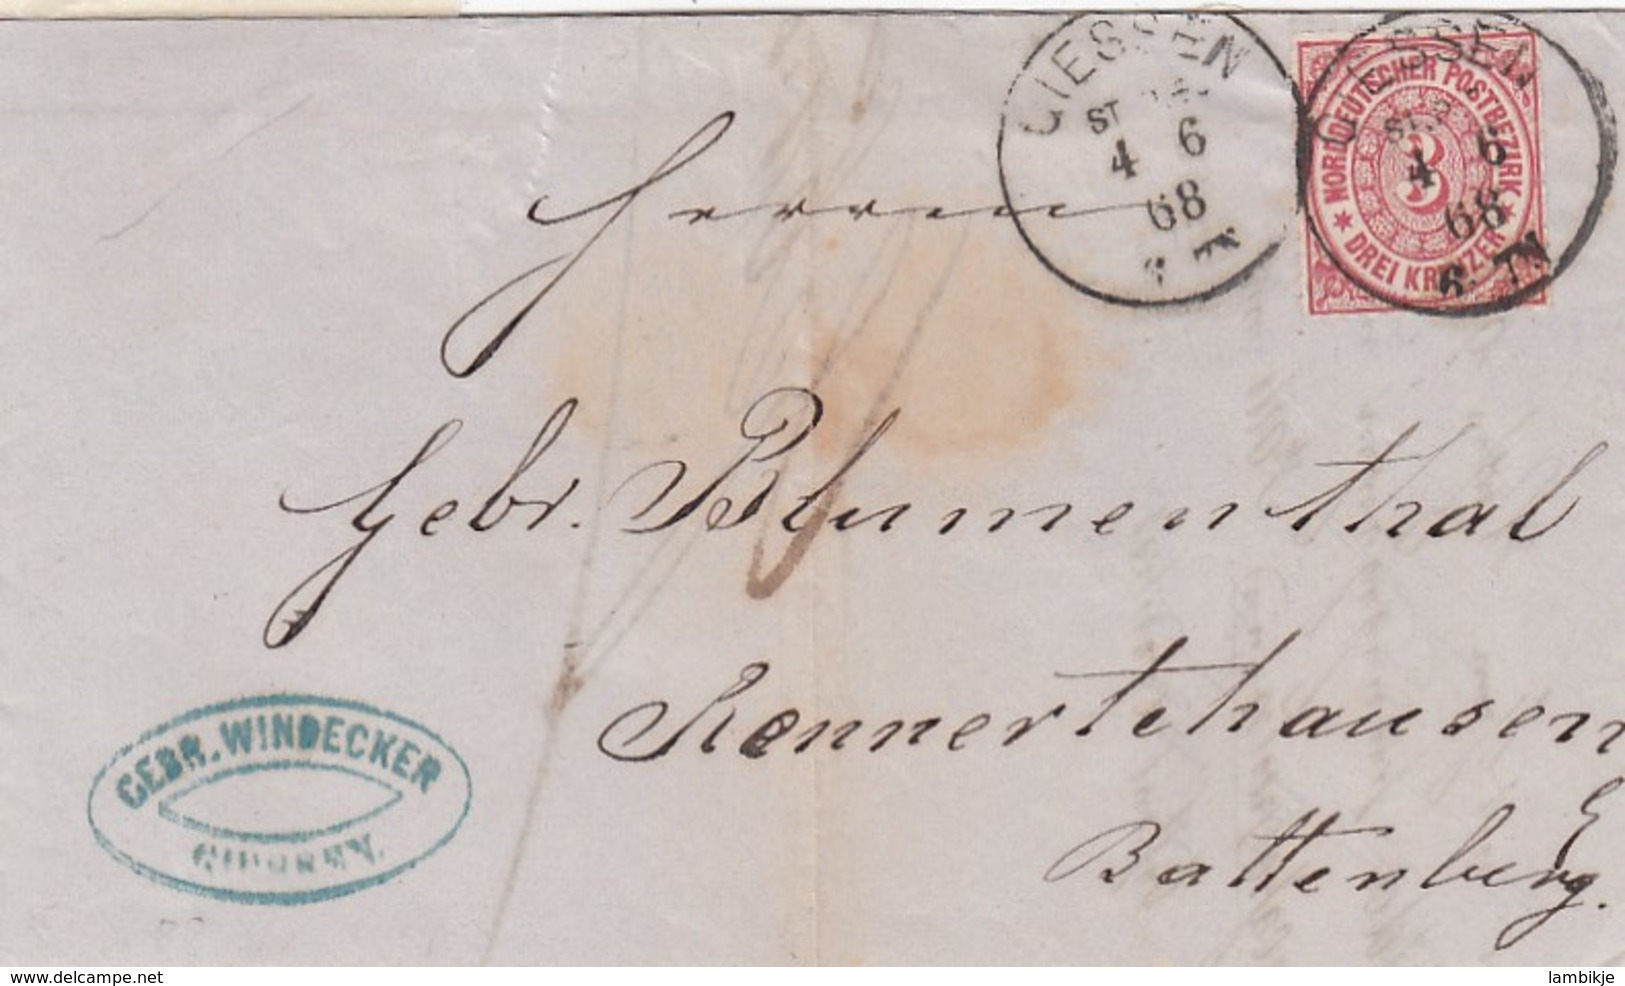 GIESSEN
ST
4 6
68
6. 7N
GIESSEN
ST.
4 6
68
6. 7N
NORDDEUTSCHER POSTBEZIRK
3
* DREI KREUZER *
Herren
Gebr. Blumenthal
Rennertehausen
Battenberg.
GEBR. WINDECKER
GIESSEN.
www.delcampe.net
lambikje